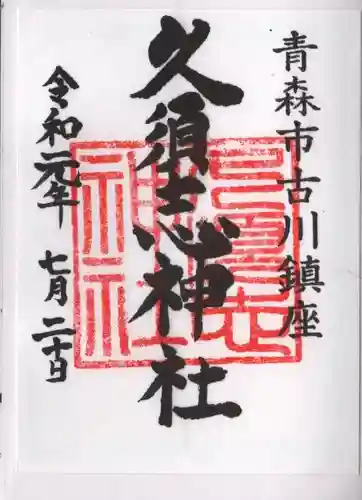 青森市古川鎮座
久須志神社
令和元年 七月二十日
久須志
神社